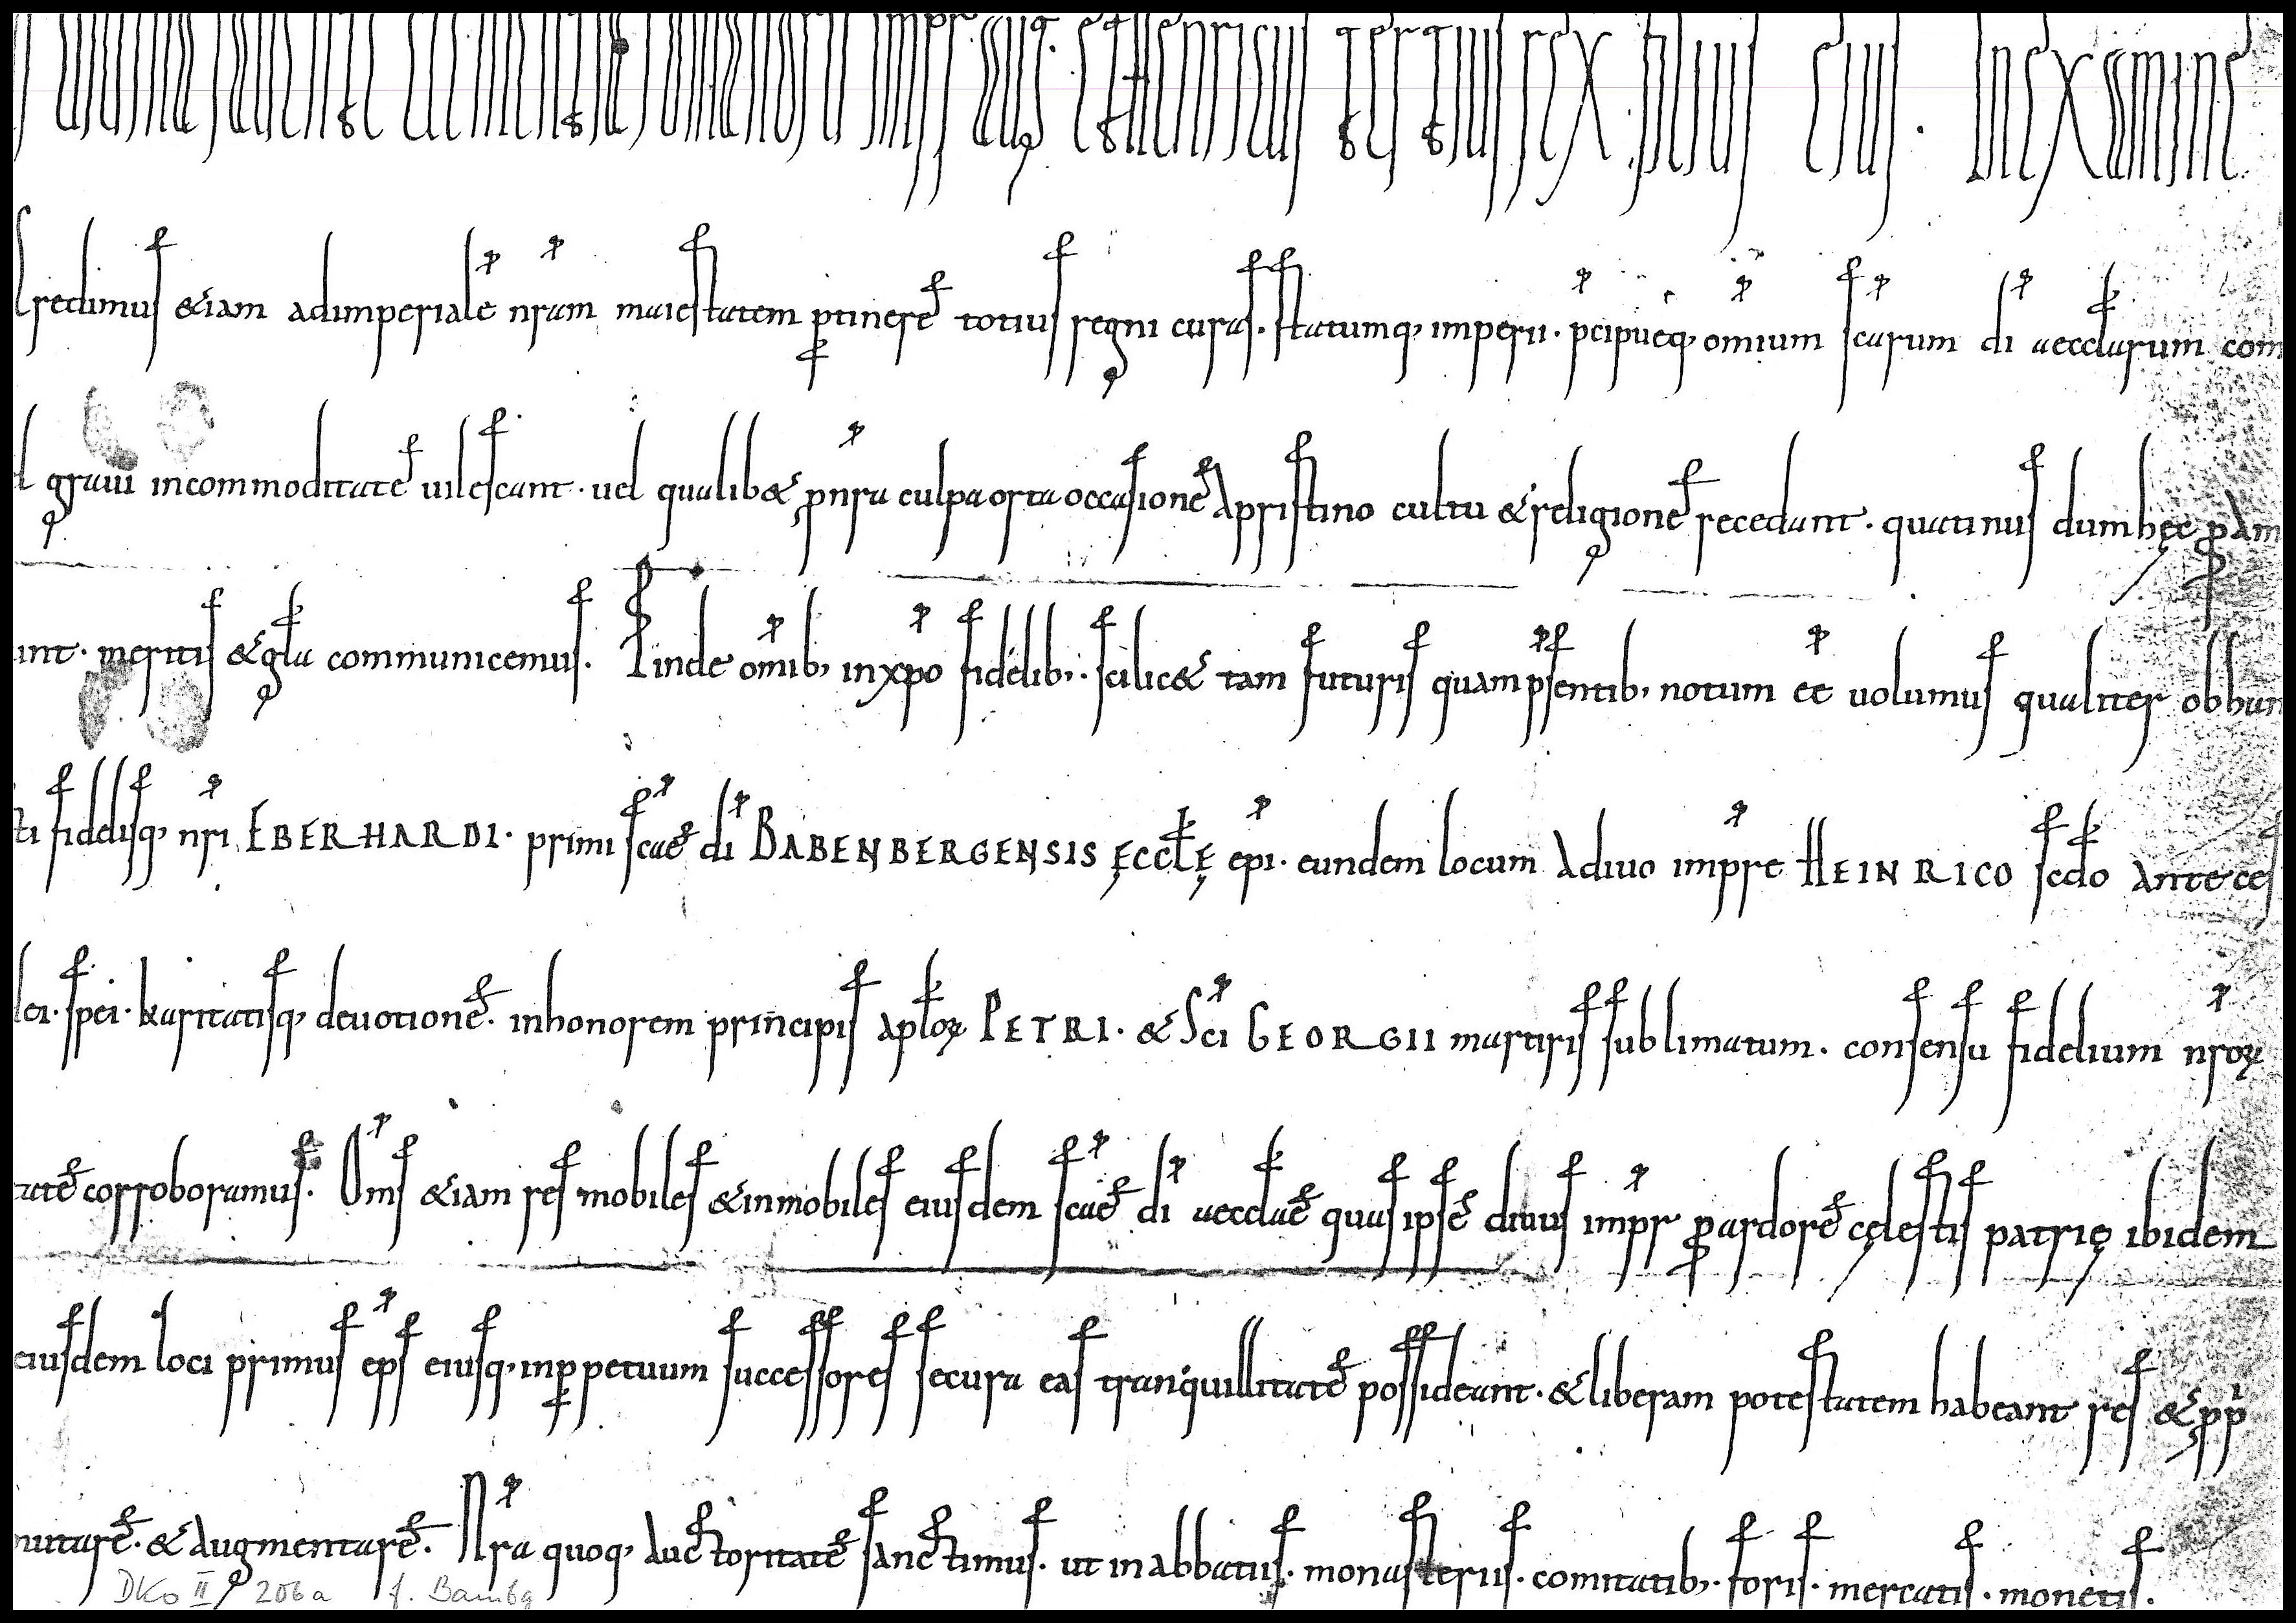 diuina fauente clementia romanoru impr aug. et Henricus tertius rex filius eius. In examine
Credimus &iam adimperiale nram maiestatem ptinere totius regni curas. statumq; imperii. pcipueq; omium scarum di aecclarum com
graui incommoditate uilescant. uel qualib& pnra culpa orta occasione Apristino cultu & religione recedant. quatinus dum hęc pam
unt. meritis & gla communicemus. Pinde omib; inxpo fidelib;. scilic& tam futuris quam psentib; notum ee uolumus qualiter ob hun
ti fidelisq; nri EBERHARDI. primi scae di BABENBERGENSIS ĘCCLĘ epi. eundem locum Adiuo impre HEINRICO scdo Anteces
dei. spei. karitatisq; deuotione. inhonorem principis aploꝝ PETRI. & Sci GEORGII martiris sublimatum. consensu fidelium nroꝝ
tate corroboramus. Oms &iam res mobiles & inmobiles eiusdem scae di aecclae quas ipse diuus impr p ardore cęlestis patrię ibidem
eiusdem loci primus eps eiusq; inppetuum successores secura eas tranquillitate possideant. & liberam potestatem habeant res & pp
mutare. & Augmentare. Nra quoq; Auctoritate sanctimus. ut in abbatiis. monasteriis. comitatib;. foris. mercatis. monetis.
DKo II 206a f. Bambg